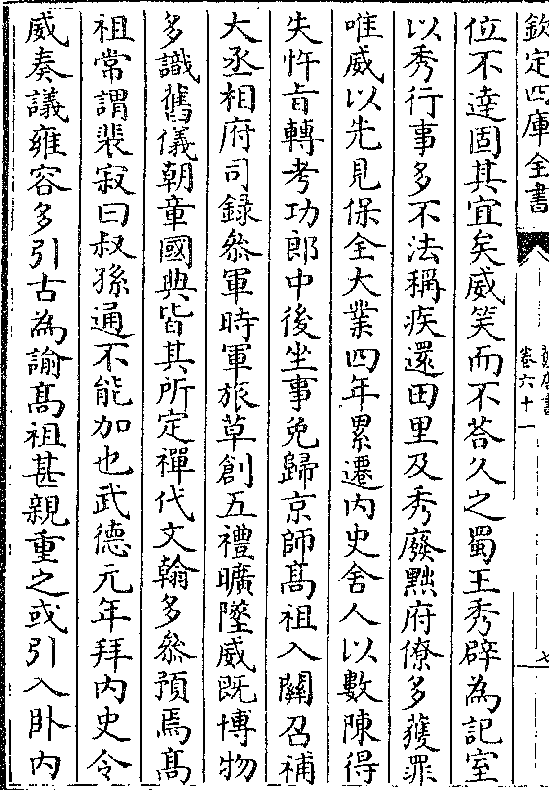 欽定四庫全書
卷六十一
位不達固其宜矣威笑而不荅久之蜀王秀辟為記室
以秀行事多不法稱疾還田里及秀廢黜府僚多獲罪
唯威以先見保全大業四年累遷内史舍人以數陳得
失忤旨轉考功郎中後坐事免歸京師髙祖入關召補
大丞相府司錄叅軍時軍旅草創五禮曠墜威既博物
多識舊儀朝章國典皆其所定禪代文翰多叅預焉髙
祖常謂裴寂曰叔孫通不能加也武德元年拜内史令
威奏議雍容多引古為諭髙祖甚親重之或引入卧内